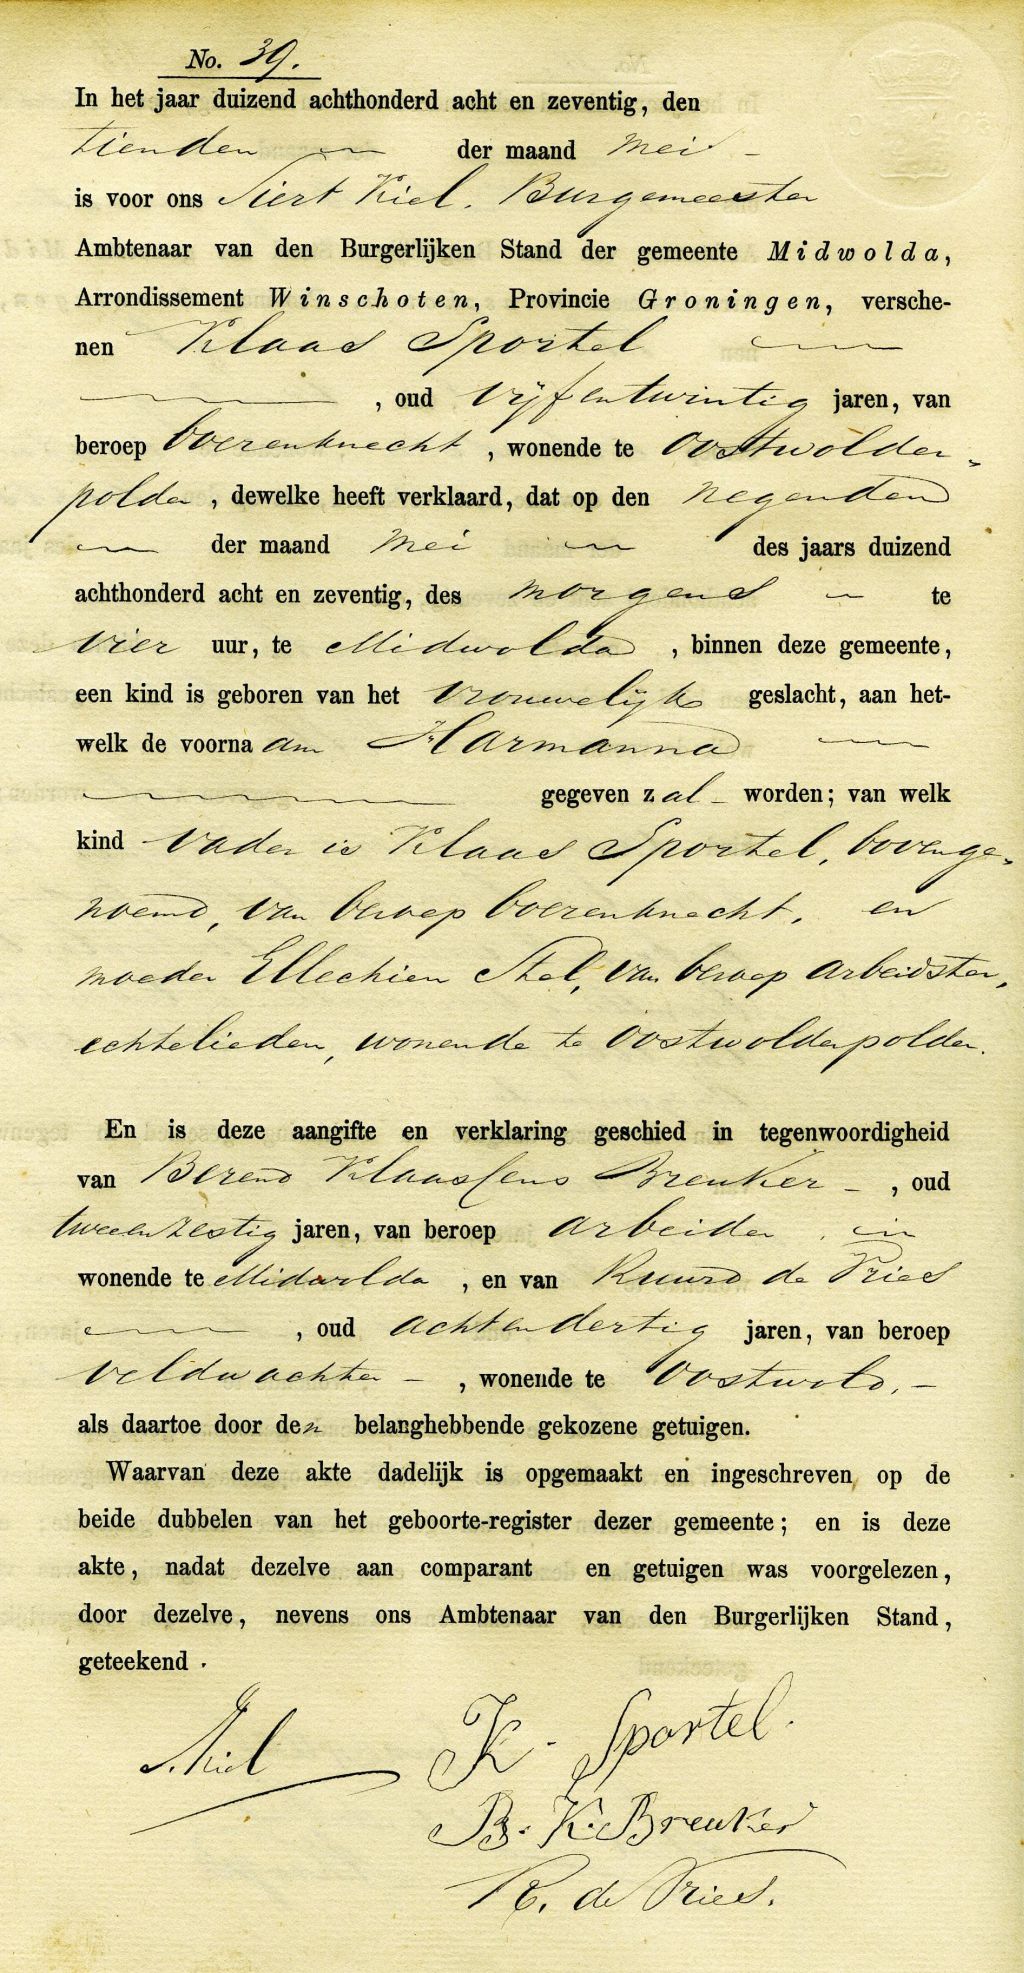 No. 39.
In het jaar duizend achthonderd acht en zeventig, den
tienden der maand Mei
is voor ons Siert Kiel, Burgemeester
Ambtenaar van den Burgerlijken Stand der gemeente Midwolda,
Arrondissement Winschoten, Provincie Groningen, versche-
nen Klaas Sportel
, oud vijfentwintig jaren, van
beroep boerenknecht, wonende te Oostwolder-
polder, dewelke heeft verklaard, dat op den negenden
der maand Mei des jaars duizend
achthonderd acht en zeventig, des morgens te
vier uur, te Midwolda, binnen deze gemeente,
een kind is geboren van het vrouwelijk geslacht, aan het-
welk de voornaam Harmanna
gegeven zal worden; van welk
kind vader is Klaas Sportel, bovenge-
noemd, van beroep boerenknecht, en
moeder Ellechien Stel, van beroep arbeidster,
echtelieden, wonende te Oostwolderpolder.
En is deze aangifte en verklaring geschied in tegenwoordigheid
van Berend Klaassens Breuker, oud
tweeenzestig jaren, van beroep arbeider,
wonende te Midwolda, en van Ruurd de Vries
, oud achtendertig jaren, van beroep
veldwachter, wonende te Oostwold,
als daartoe door den belanghebbende gekozene getuigen.
Waarvan deze akte dadelijk is opgemaakt en ingeschreven op de
beide dubbelen van het geboorte-register dezer gemeente; en is deze
akte, nadat dezelve aan comparant en getuigen was voorgelezen,
door dezelve, nevens ons Ambtenaar van den Burgerlijken Stand,
geteekend.
S. Kiel K. Sportel.
B. K. Breuker
R. de Vries.